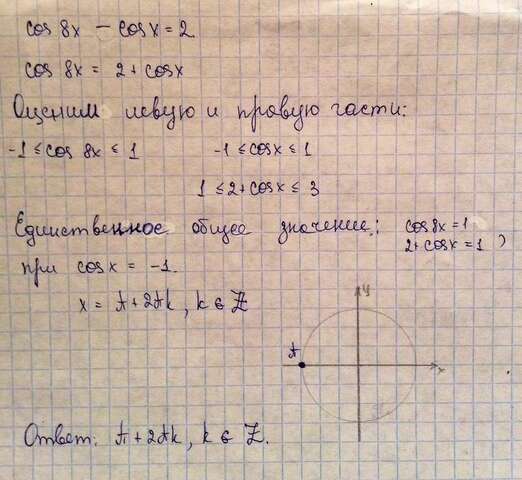 cos 8x - cosx = 2
cos 8x = 2 + cosx
Оценим левую и правую части:
-1 ≤ cos 8x ≤ 1 -1 ≤ cosx ≤ 1
1 ≤ 2 + cosx ≤ 3
Единственное общее значение: cos8x = 1
2 + cosx = 1 )
при cosx = -1.
x = π + 2πk, k ∈ Z
y
π
x
Ответ: π + 2πk, k ∈ Z.